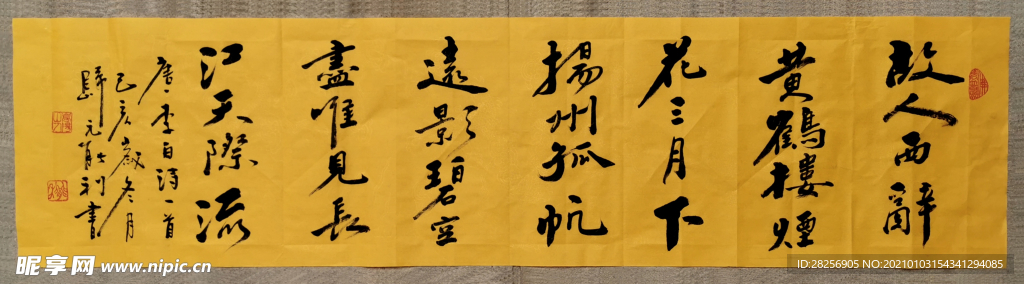 故人西辭
黄鶴樓煙
花三月下
揚州孤帆
遠影碧空
盡唯見長
江天際流
唐·李白詩一首
己亥歲冬月
元
利書
昵享网 www.nipic.cn
ID:28256905 NO:20210103154341294085